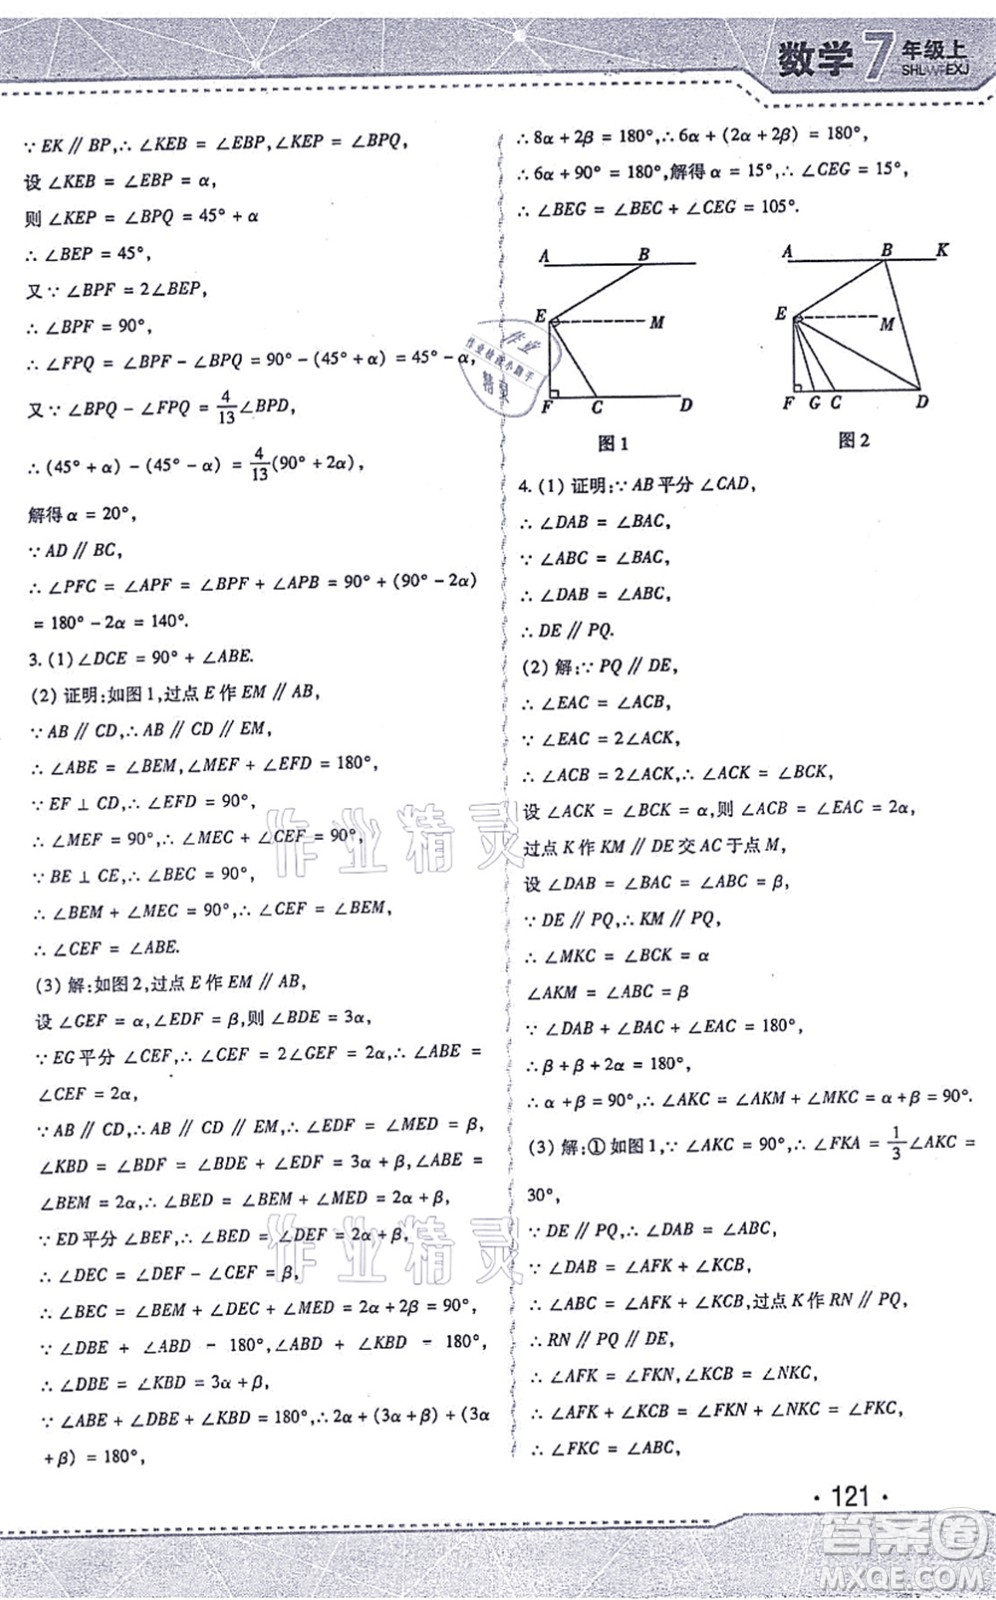 数学7年级上
SHLWFEXJ
∵ EK∥BP,∴ ∠KEB = ∠EBP,∠KEP = ∠BPQ,
设 ∠KEB = ∠EBP = α,
则 ∠KEP = ∠BPQ = 45° + α
∴ ∠BEP = 45°,
又∵ ∠BPF = 2∠BEP,
∴ ∠BPF = 90°,
∴ ∠FPQ = ∠BPF - ∠BPQ = 90° - (45° + α) = 45° - α,
又∵ ∠BPQ - ∠FPQ = 4/13∠BPD,
∴ (45° + α) - (45° - α) = 4/13(90° + 2α),
解得 α = 20°,
∵ AD∥BC,
∴ ∠PFC = ∠APF = ∠BPF + ∠APB = 90° + (90° - 2α)
= 180° - 2α = 140°.
3. (1) ∠DCE = 90° + ∠ABE.
(2) 证明:如图1,过点E作EM∥AB,
∵ AB∥CD,∴ AB∥CD∥EM,
∴ ∠ABE = ∠BEM,∠MEF + ∠EFD = 180°,
∵ EF⊥CD,∴ ∠EFD = 90°,
∴ ∠MEF = 90°,∴ ∠MEC + ∠CEF = 90°,
∵ BE⊥CE,∴ ∠BEC = 90°,
∴ ∠BEM + ∠MEC = 90°,∴ ∠CEF = ∠BEM,
∴ ∠CEF = ∠ABE.
(3) 解:如图2,过点E作EM∥AB,
设 ∠GEF = α,∠EDF = β,则 ∠BDE = 3α,
∵ EG平分∠CEF,∴ ∠CEF = 2∠GEF = 2α,∴ ∠ABE =
∠CEF = 2α,
∵ AB∥CD,∴ AB∥CD∥EM,∴ ∠EDF = ∠MED = β,
∠KBD = ∠BDF = ∠BDE + ∠EDF = 3α + β,∴ ∠ABE =
∠BEM = 2α,∴ ∠BED = ∠BEM + ∠MED = 2α + β,
∵ ED平分∠BEF,∴ ∠BED = ∠DEF = 2α + β,
∴ ∠DEC = ∠DEF - ∠CEF = β,
∴ ∠BEC = ∠BEM + ∠DEC + ∠MED = 2α + 2β = 90°,
∵ ∠DBE + ∠ABD = 180°,∴ ∠ABD + ∠KBD = 180°,
∴ ∠DBE = ∠KBD = 3α + β,
∵ ∠ABE + ∠DBE + ∠KBD = 180°,∴ 2α + (3α + β) + (3α
+ β) = 180°,
∴ 8α + 2β = 180°,∴ 6α + (2α + 2β) = 180°,
∴ 6α + 90° = 180°,解得 α = 15°,∴ ∠CEG = 15°,
∴ ∠BEG = ∠BEC + ∠CEG = 105°.
A B
E M
F C D
图1
A B K
E M
F G C D
图2
4. (1) 证明:∵ AB平分∠CAD,
∴ ∠DAB = ∠BAC,
∵ ∠ABC = ∠BAC,
∴ ∠DAB = ∠ABC,
∴ DE∥PQ.
(2) 解:∵ PQ∥DE,
∴ ∠EAC = ∠ACB,
∵ ∠EAC = 2∠ACK,
∴ ∠ACB = 2∠ACK,∴ ∠ACK = ∠BCK,
设 ∠ACK = ∠BCK = α,则 ∠ACB = ∠EAC = 2α,
过点K作KM∥DE交AC于点M,
设 ∠DAB = ∠BAC = ∠ABC = β,
∵ DE∥PQ,∴ KM∥PQ,
∴ ∠MKC = ∠BCK = α
∠AKM = ∠ABC = β
∵ ∠DAB + ∠BAC + ∠EAC = 180°,
∴ β + β + 2α = 180°,
∴ α + β = 90°,∴ ∠AKC = ∠AKM + ∠MKC = α + β = 90°.
(3) 解:①如图1,∵ ∠AKC = 90°,∴ ∠FKA = 1/3∠AKC =
30°,
∵ DE∥PQ,∴ ∠DAB = ∠ABC,
∵ ∠DAB = ∠AFK + ∠KCB,
∴ ∠ABC = ∠AFK + ∠KCB,过点K作RN∥PQ,
∴ RN∥PQ∥DE,
∴ ∠AFK = ∠FKN,∠KCB = ∠NKC,
∴ ∠AFK + ∠KCB = ∠FKN + ∠NKC = ∠FKC,
∴ ∠FKC = ∠ABC,
· 121 ·
作业精灵
作业检查小助手
作业精灵
作业精灵
答案圈
MXQE.COM